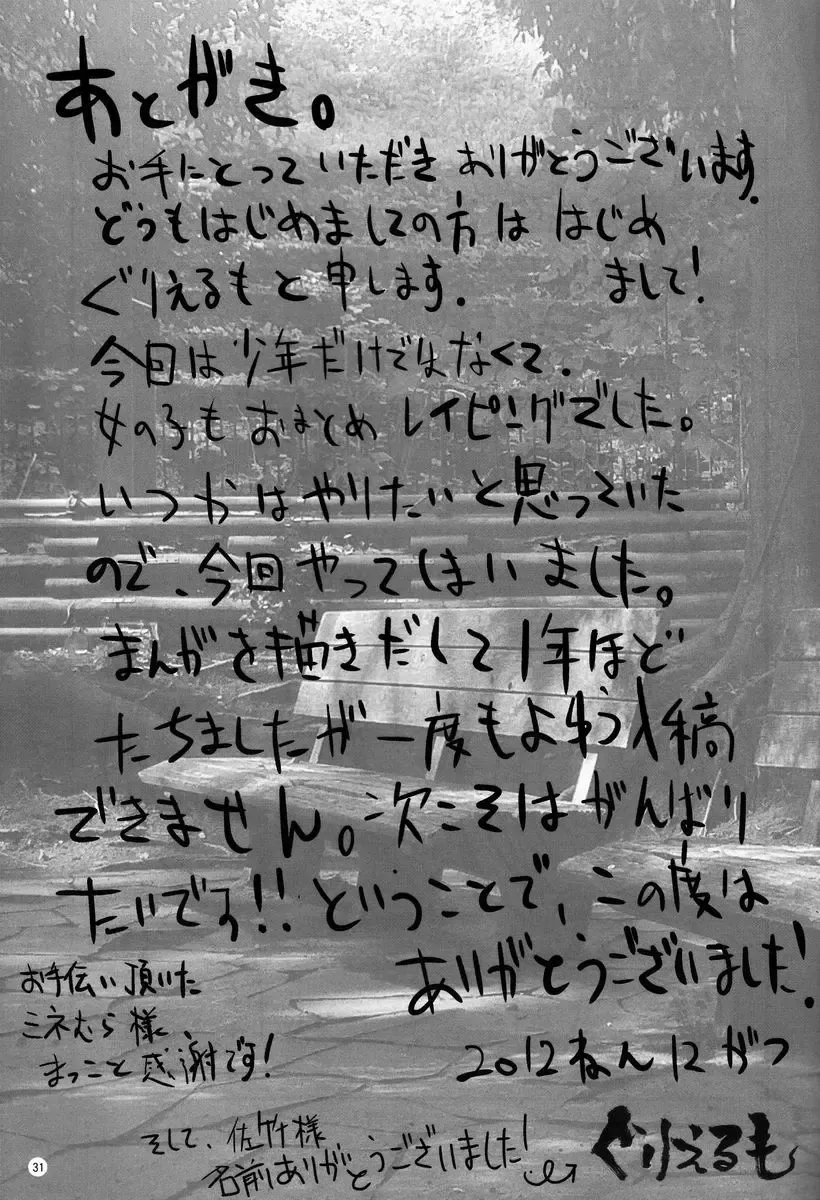 あとがき。
お手にとっていただき ありがとうございます.
どうもはじめましての方は はじめ
ぐりえるもと申します. まして!
今回は少年だけではなくて.
女の子もおまとめ レイピングでした。
いつかはやりたいと思っていた
ので、今回やってしまいました。
まんがを描きだして1年ほど
たちましたが一度もよゆう入稿
できません。次こそはがんばり
たいです!! ということで、この度は
ありがとうございました!
お手伝い頂いた
ミネむら様、
まっこと感謝です!
2012ねん12がつ
そして、佐竹様
名前ありがとうございました!
ぐりえるも
31